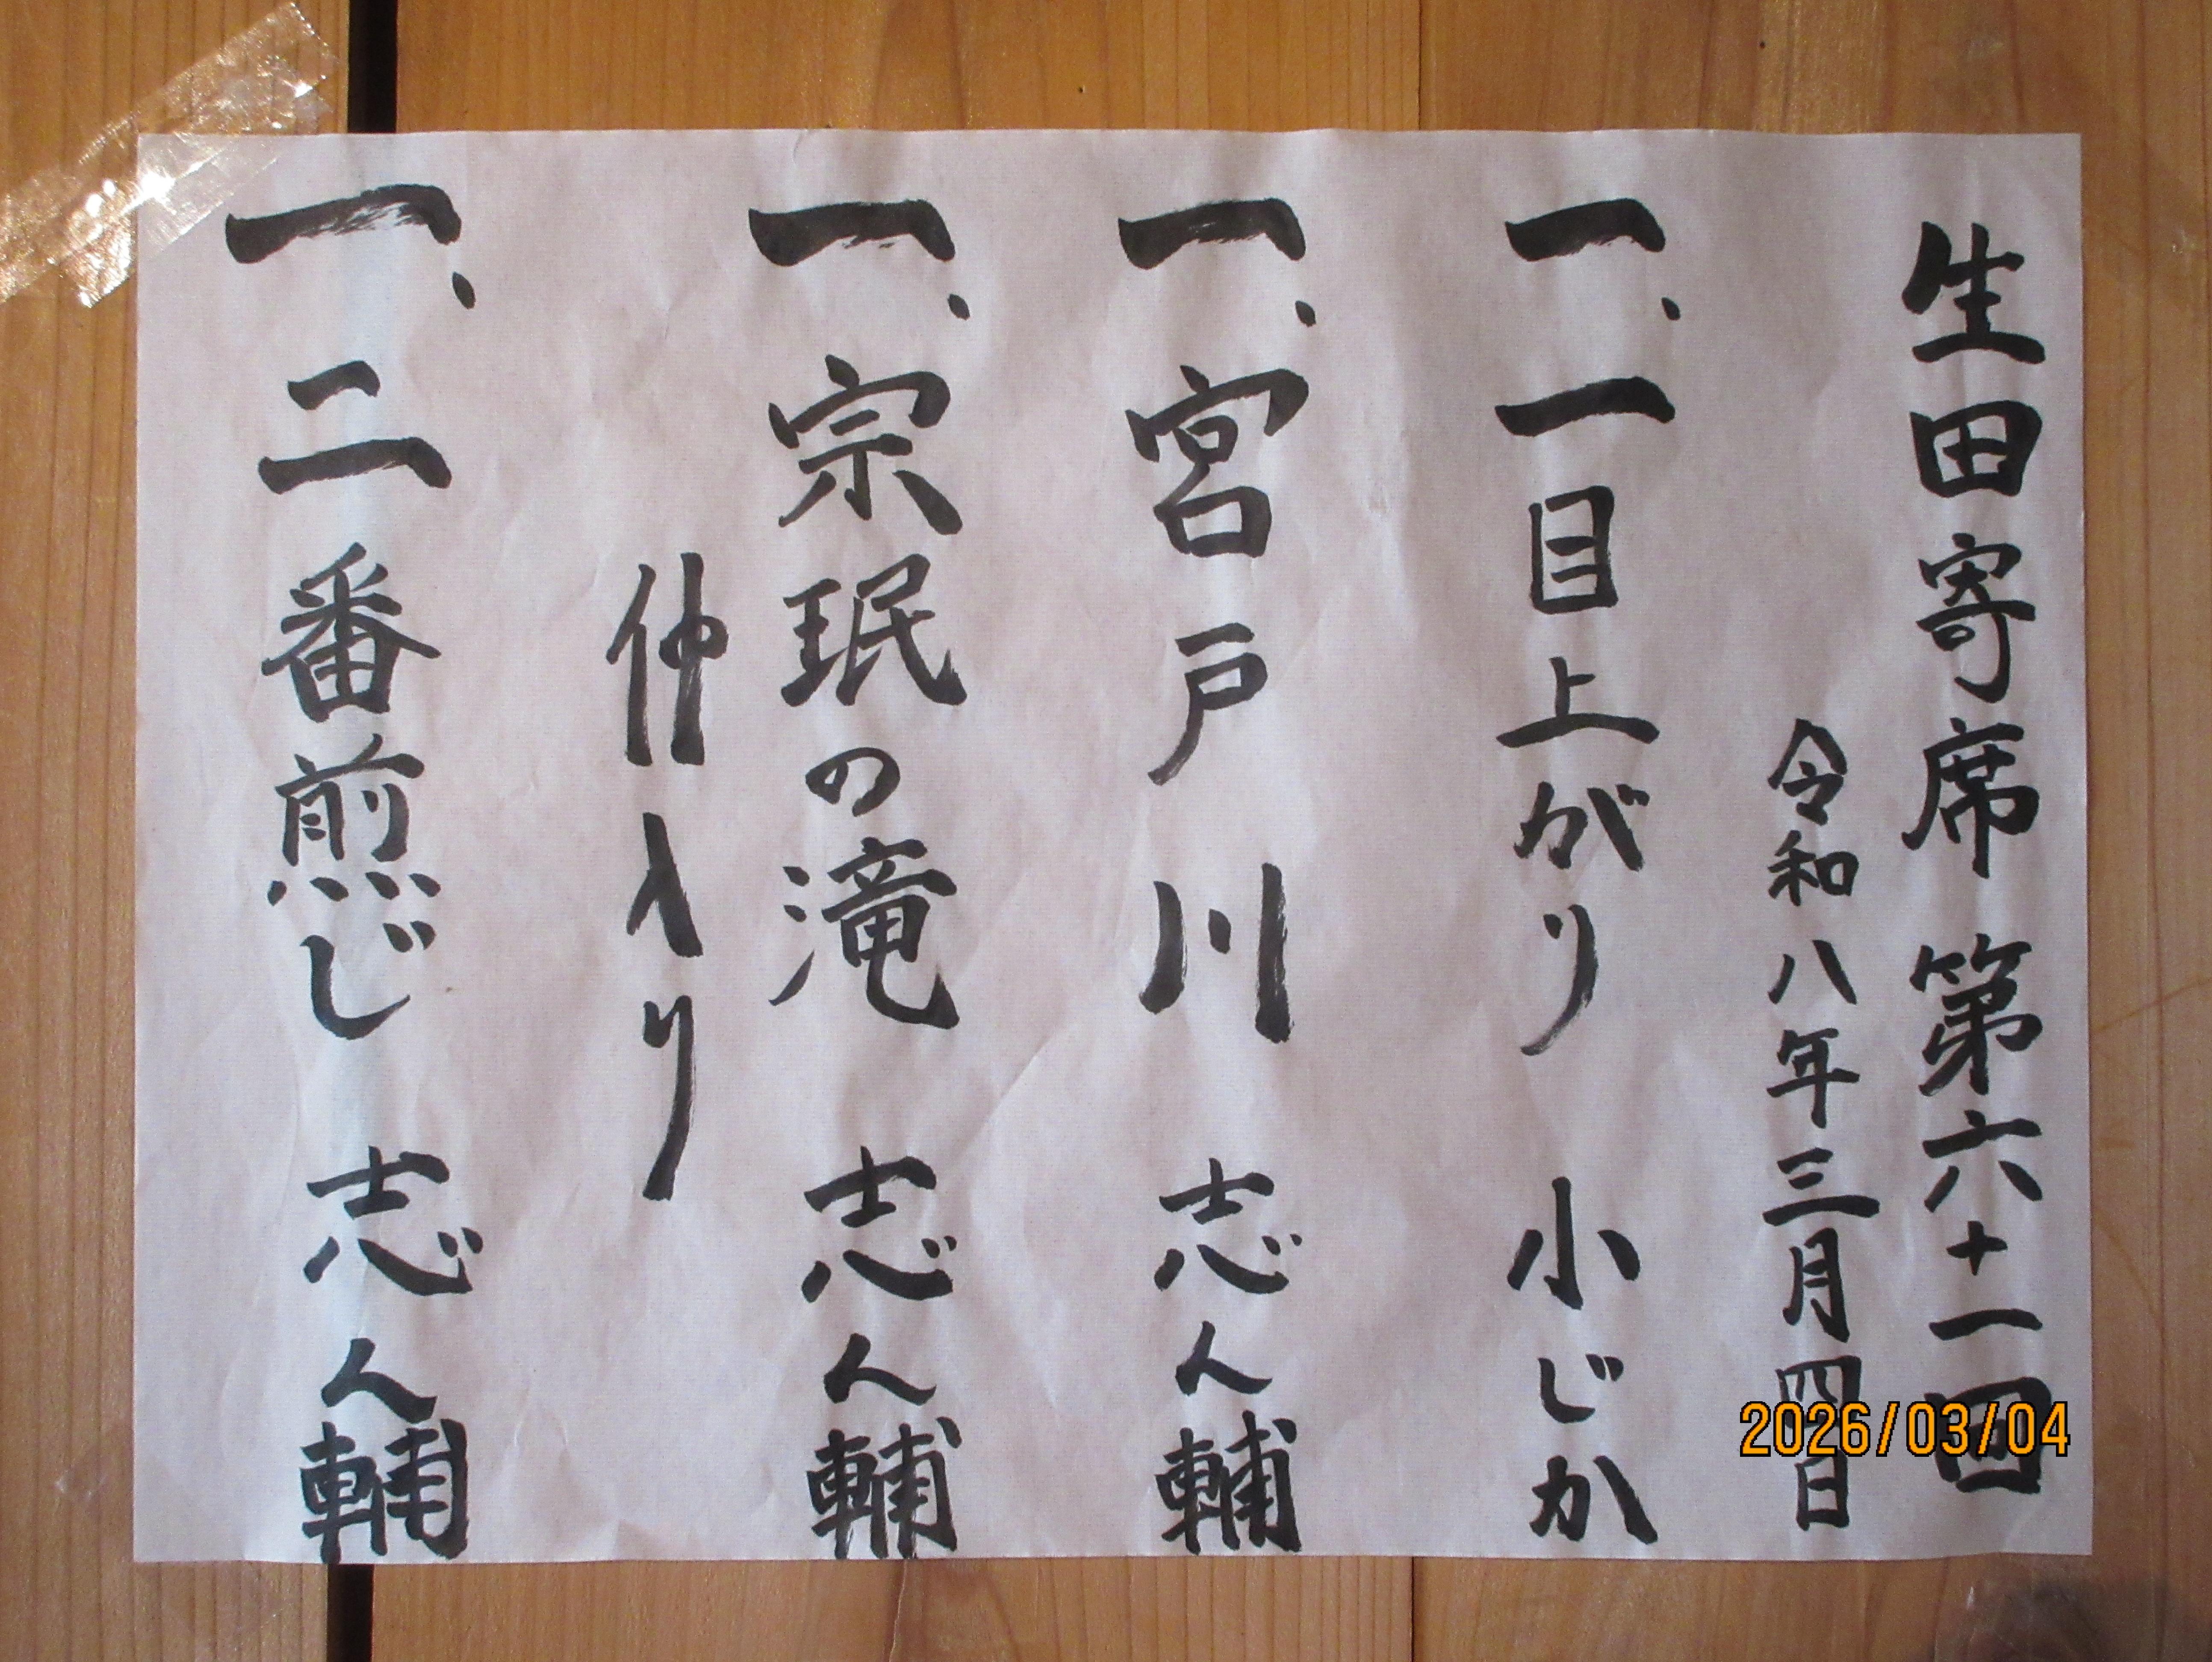 生田寄席 第六十一回
令和八年三月四日
一、一目上がり 小じか
一、宮戸川 志ん輔
一、宗珉の滝 志ん輔
仲入り
一、二番煎じ 志ん輔
2026/03/04